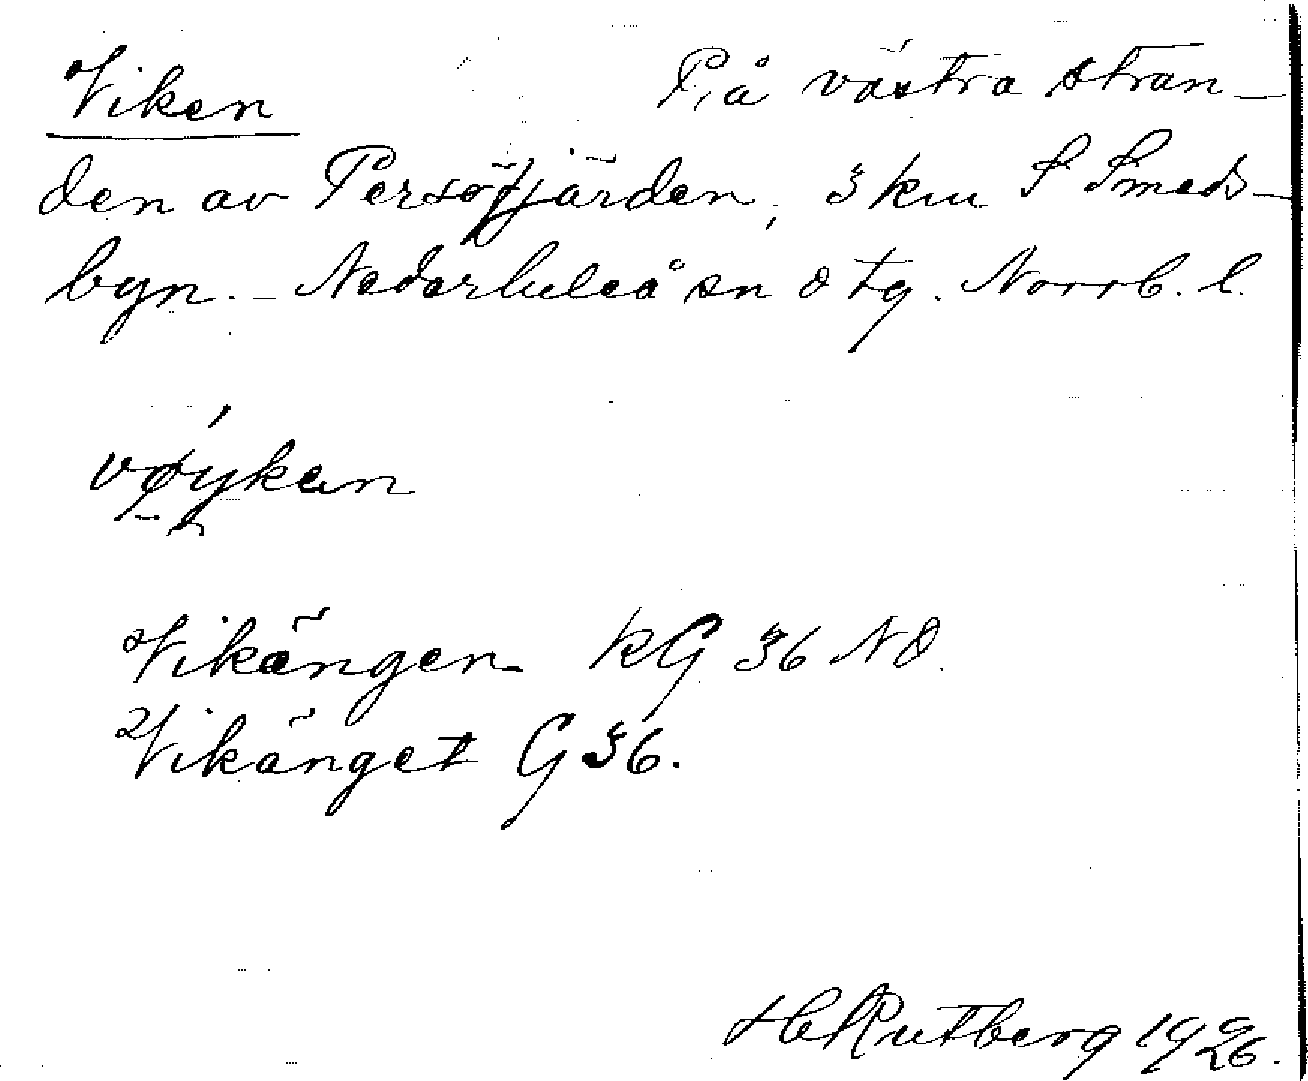 Viken På västra stran-
den av Persöfjärden, 3 km S Smeds-
byn. - Nederluleå sn o tg. Norrb. l.
vøykɐn
Vikängen kG 36 NO.
Vikänget G 36.
H Rutberg 1926.